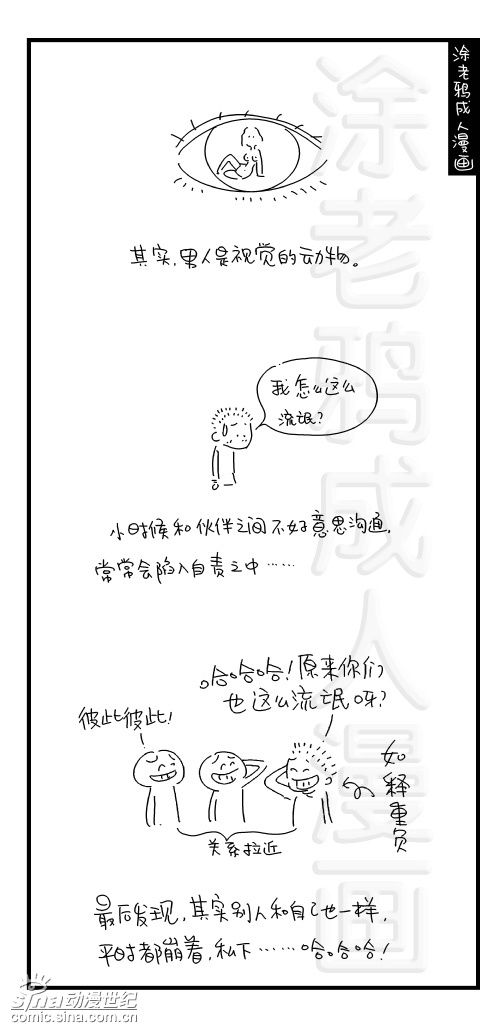 涂老鸦成人漫画
涂老鸦成人漫画
其实,男人是视觉的动物。
我怎么这么
流氓?
小时候和伙伴之间不好意思沟通,
常常会陷入自责之中……
哈哈哈!原来你们
也这么流氓呀?
彼此彼此!
如释重负
关系拉近
最后发现,其实别人和自己也一样,
平时都崩着,私下……哈哈哈!
sina动漫世纪
comic.sina.com.cn